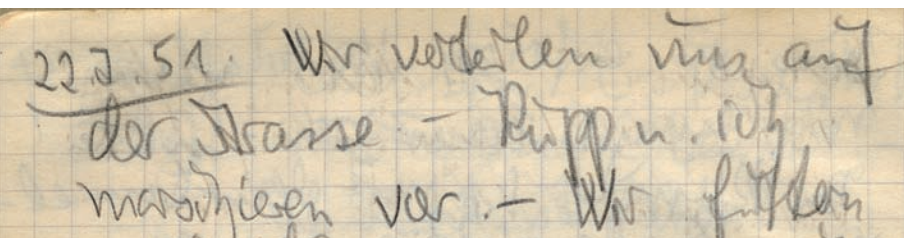 22.J.51. Wir verteilen uns auf
der Strasse - Rupp u. ich
marschieren vor. - Wir